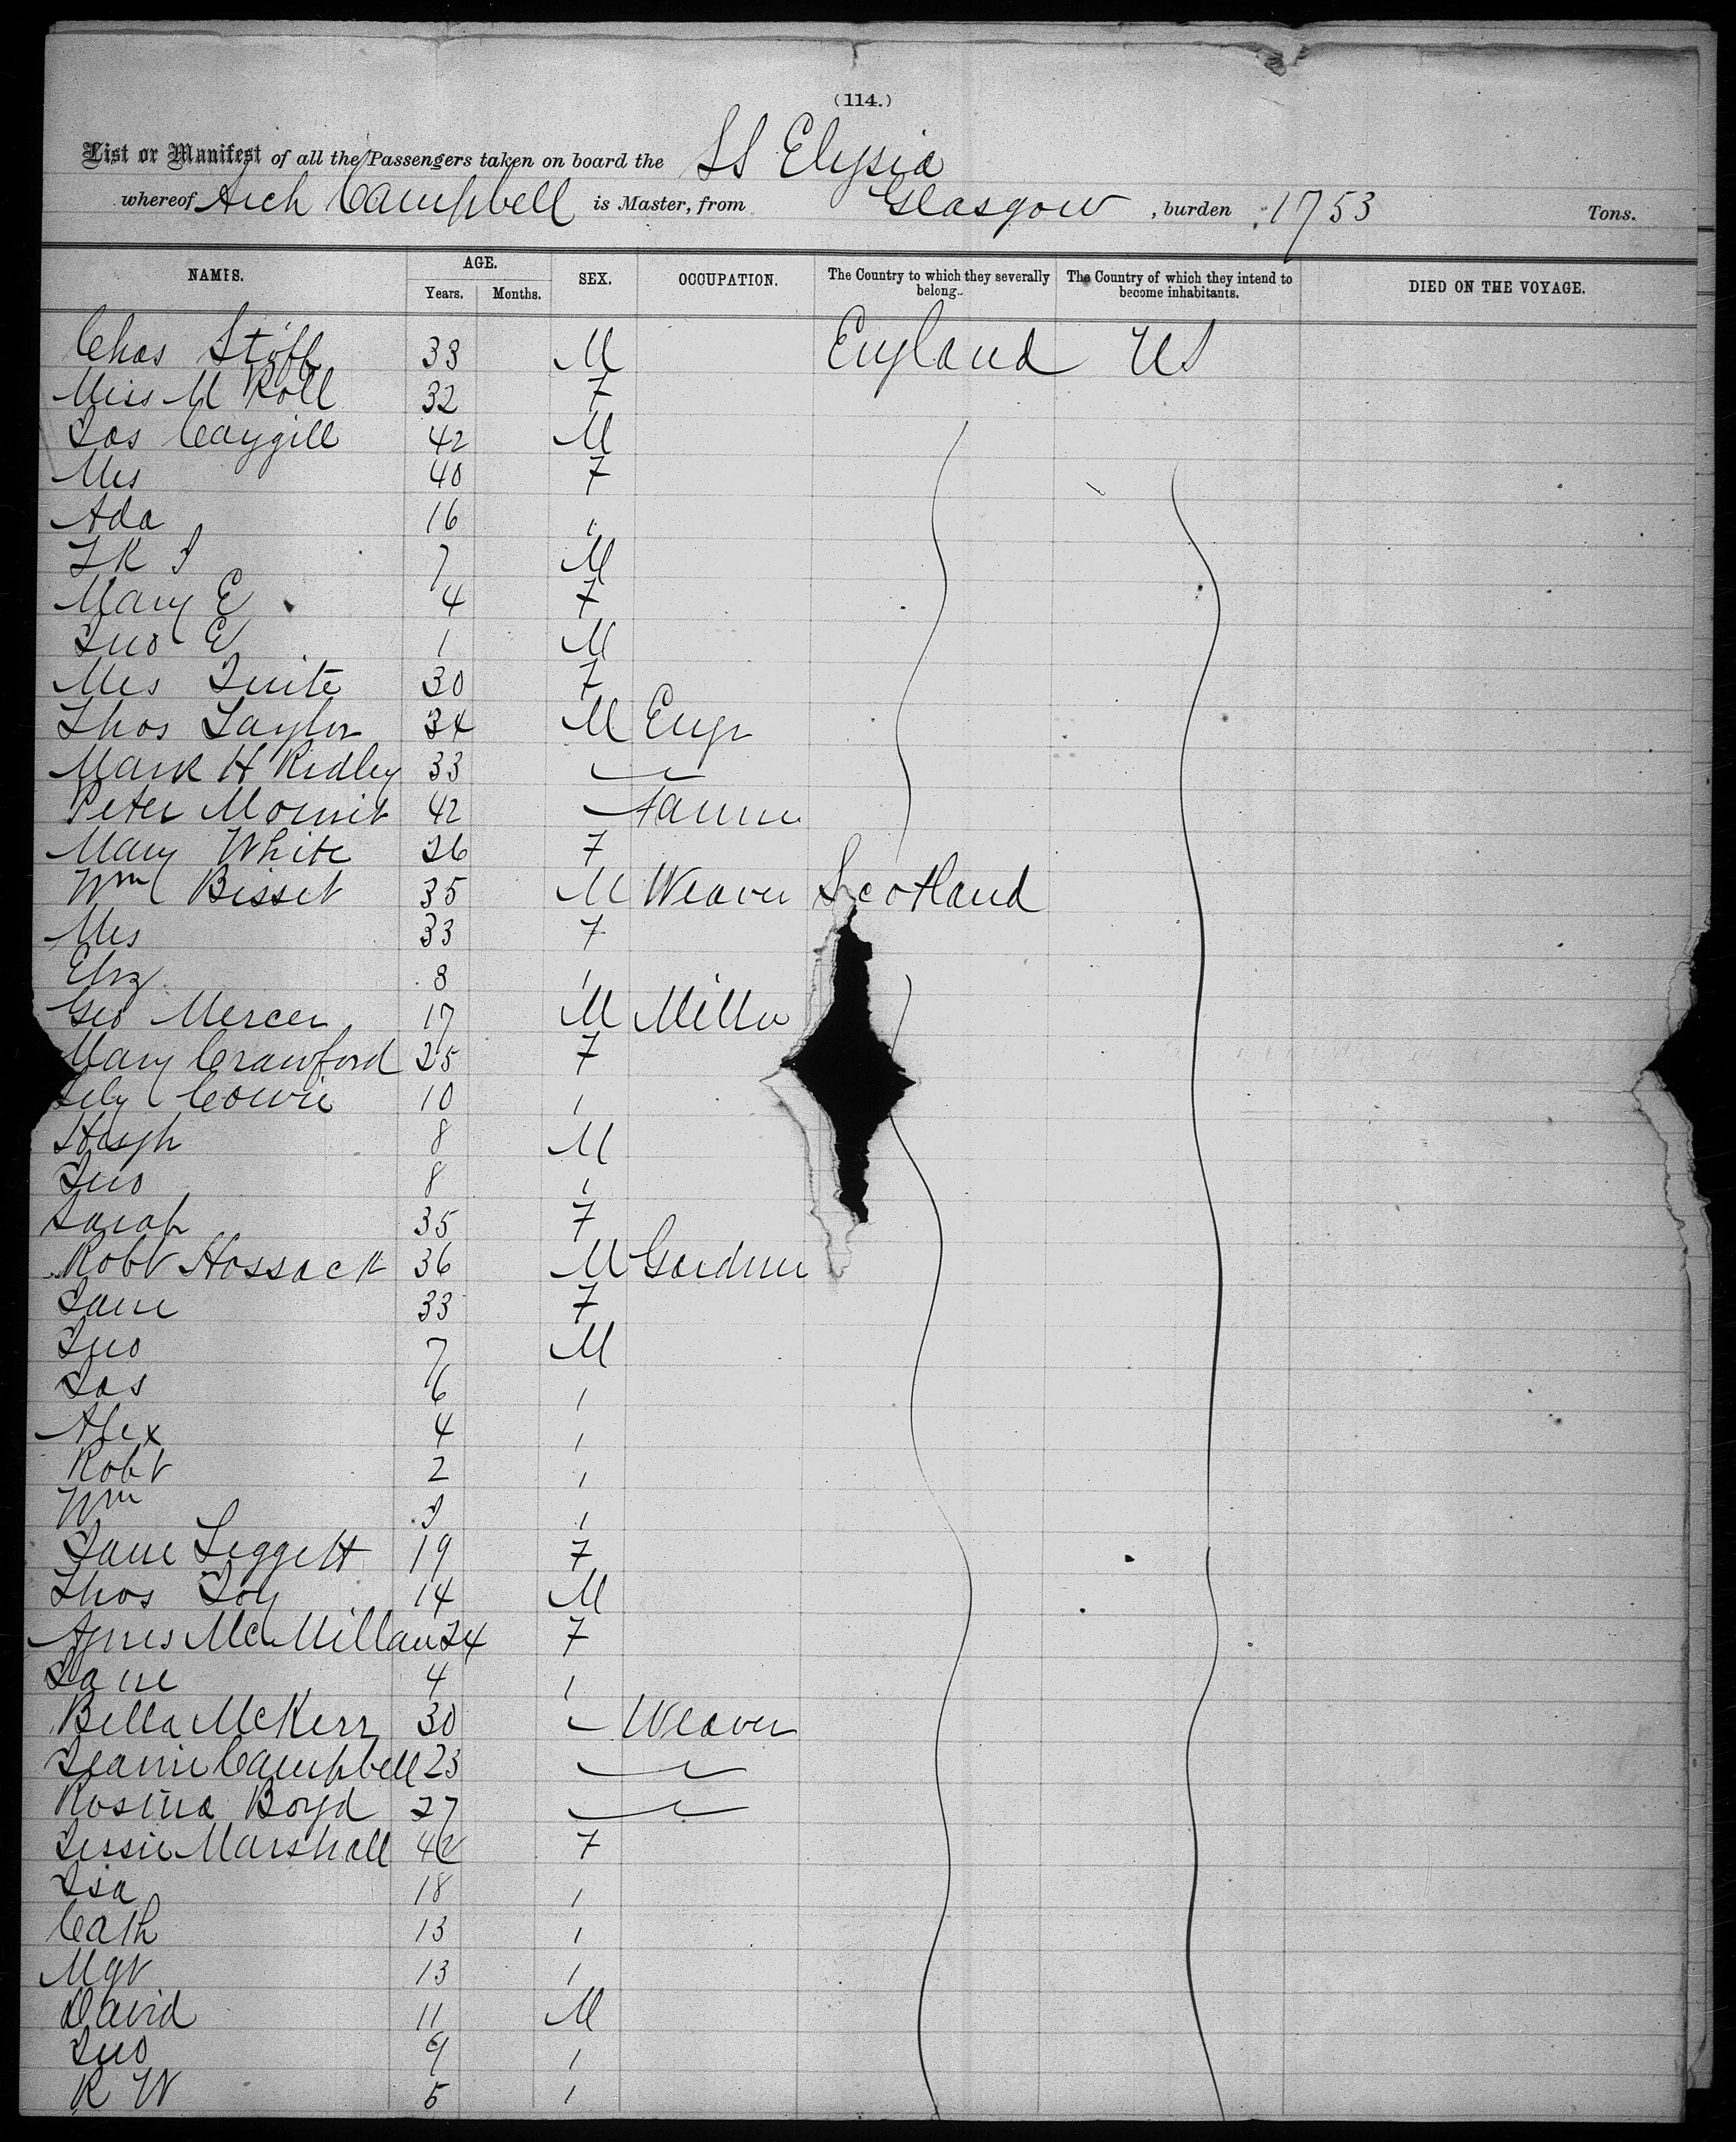 (114.)
List or Manifest of all the Passengers taken on board the SS Elysia
whereof Arch Campbell is Master, from Glasgow, burden 1753 Tons.
NAMES. AGE. SEX. OCCUPATION. The Country to which they severally belong. The Country of which they intend to become inhabitants. DIED ON THE VOYAGE.
Years. Months.
Chas 33 M England US
Miss M Roll 32 F
Jas Caygill 42 M
Mrs 40 F
Ada 16 "
7 M
Mary E 4 F
Jno E 1 M
Mrs 30 F
Thos Taylor 34 M Engr
Mark H Ridley 33
Peter 42 Farmer
Mary White 26 F
Wm Bisset 35 M Weaver Scotland
Mrs 33 F
Eliz 8 "
Geo Mercer 17 M Miller
Mary Crawford 25 F
Lily Cowie 10 "
Hugh 8 M
Jno 8 "
Sarah 35 F
Robt Hossack 36 M Gardner
Jane 33 F
Jno 7 M
Jas 6 "
Alex 4 "
Robt 2 "
Wm "
Jane Leggett 19 F
Thos Joy 14 M
Agnes McMillan 24 F
Jane 4 "
Bella McKerr 30 Weaver
Jeanie Campbell 23
Rosina Boyd 27
Jessie Marshall 42 F
Isa 18 "
Cath 13 "
Mgt 13 "
David 11 M
Jno 9 "
R W 5 "